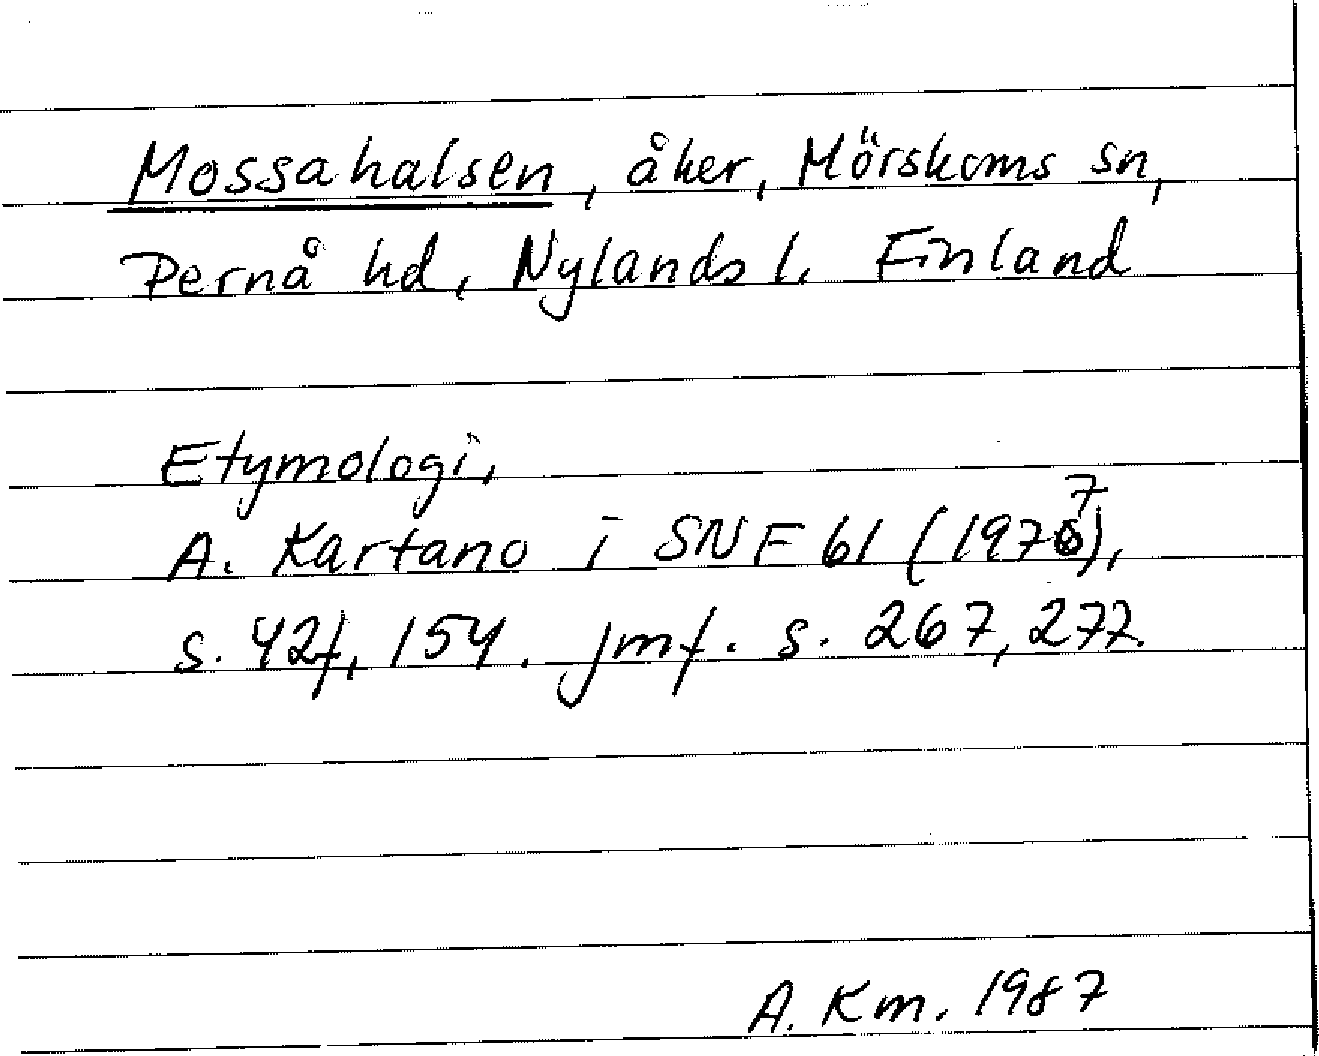 Mossahalsen, åker, Mörskoms sn,
Pernå hd, Nylands l. Finland
Etymologi,
A. Kartano i SNF 61 (1977),
s. 42f, 154. jmf. s. 267, 277.
A. Km. 1987